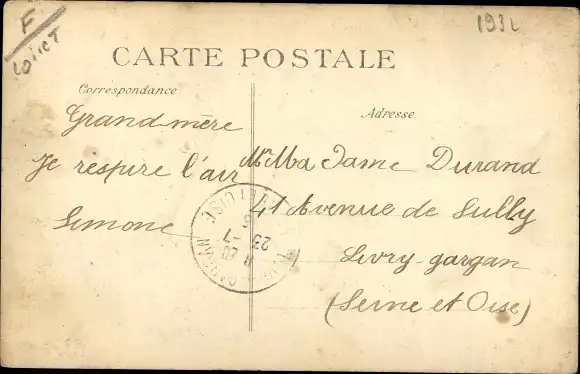 F
Loiret
193
CARTE POSTALE
Correspondance
Adresse
Grand mère
Je respire l'air
Simone
Madame Durand
41 Avenue de Sully
Livry-gargan
(Seine et Oise)
GARGAN
OISE
23
7